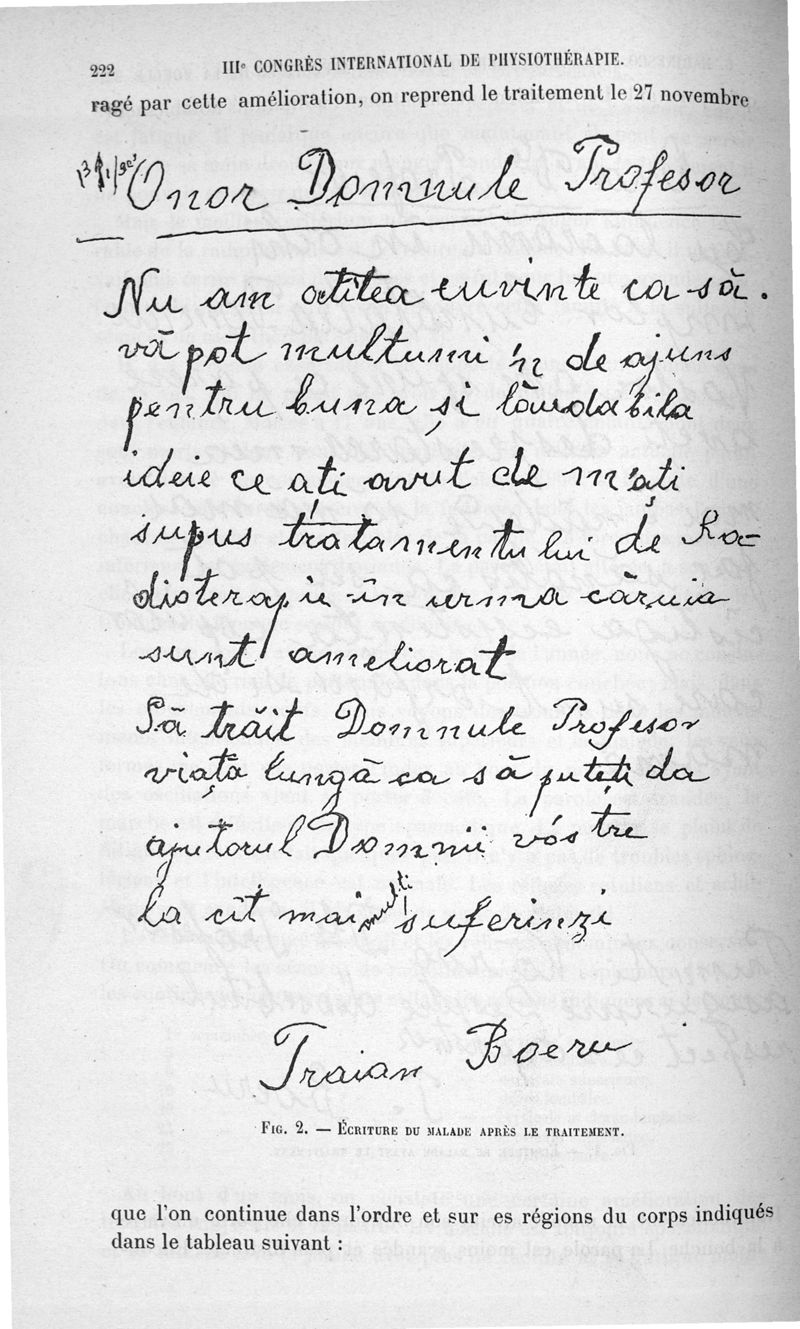 222 IIIe CONGRÈS INTERNATIONAL DE PHYSIOTHÉRAPIE.
ragé par cette amélioration, on reprend le traitement le 27 novembre
Onor Domnule Profesor
Nu am atîtea cuvinte ca să
vă pot multumi 'n de ajuns
pentru buna și lăudabila
ideie ce ați avut de m'ați
supus tratamentului de Ra-
dioterapie în urma căruia
sunt ameliorat
Să trăit Domnule Profesor
viața lungă ca să puteți da
ajutorul Domnii vós tre
la cît mai multi suferinzi
Traian Boeru
FIG. 2. — ÉCRITURE DU MALADE APRÈS LE TRAITEMENT.
que l'on continue dans l'ordre et sur es régions du corps indiqués
dans le tableau suivant :